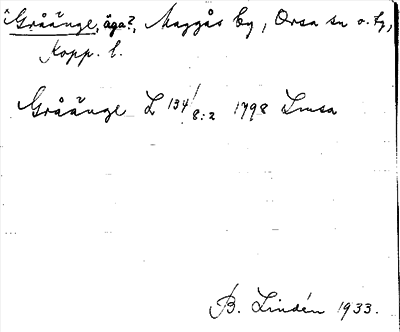 ^Gråänge, äga?, Maggås by, Orsa sn o. tg,
Kopp. l.
Gråänge L 134/8:2 1798 Linsa
B. Lindén 1933.